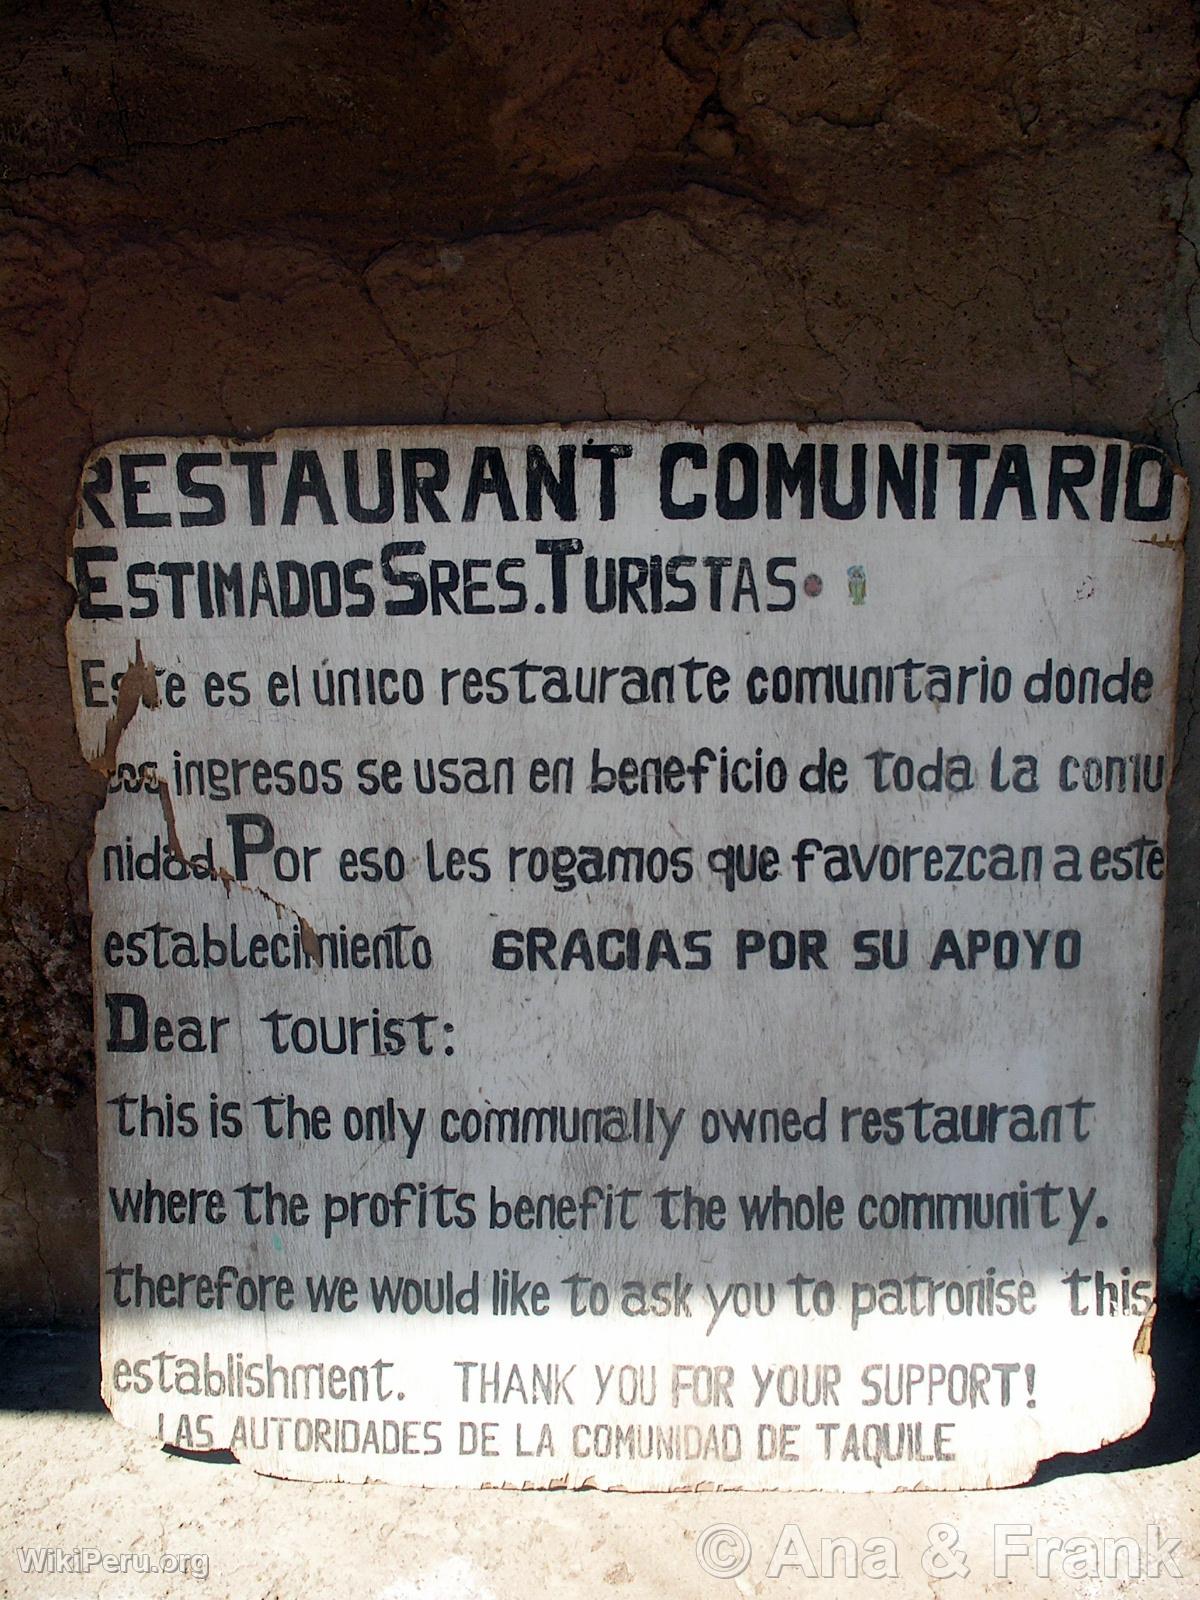 RESTAURANT COMUNITARIO
ESTIMADOS SRES. TURISTAS
Este es el único restaurante comunitario donde
los ingresos se usan en beneficio de toda la comu
nidad. Por eso les rogamos que favorezcan a este
establecimiento GRACIAS POR SU APOYO
Dear tourist:
this is the only communally owned restaurant
where the profits benefit the whole community.
therefore we would like to ask you to patronise this
establishment. THANK YOU FOR YOUR SUPPORT!
LAS AUTORIDADES DE LA COMUNIDAD DE TAQUILE
WikiPeru.org
© Ana & Frank